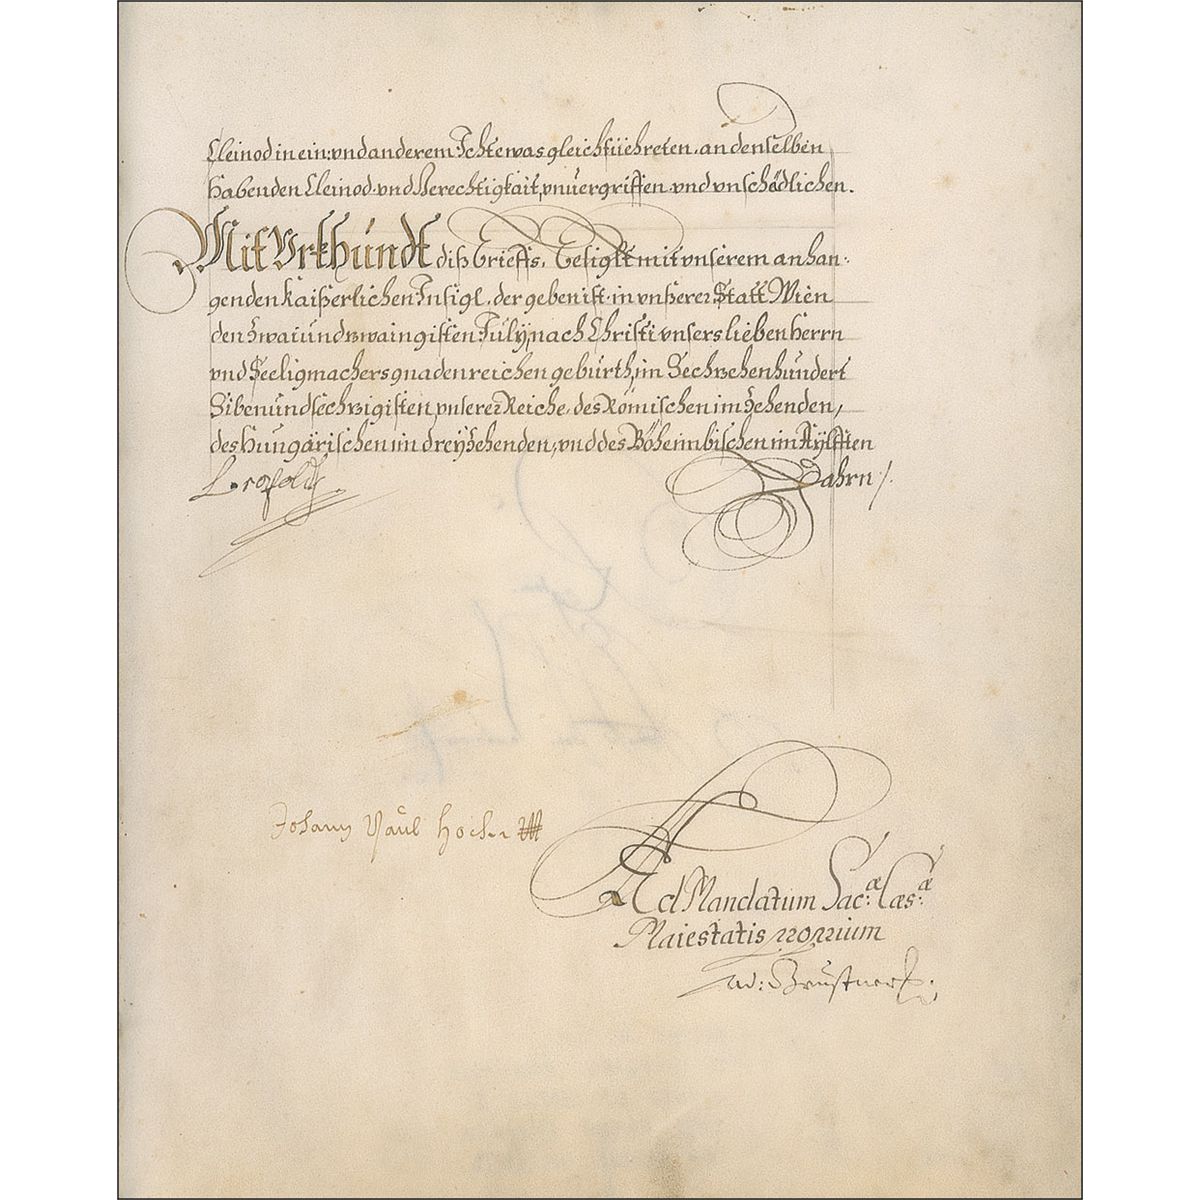 Cleinod in ein: vnd anderem Ichtewas gleich füehreten, an denselben
habenden Cleinod vnd Gerechtigkait, vnuergriffen vnd vnschädlichen.
Mit Vrkhundt diß Brieffs, Besiglt mit vnserem anhan-
genden Kaißerlichen Insigl, der geben ist in vnßerer Statt Wien
den Zwaiundzwaingisten July, nach Christi vnsers lieben Herrn
vnd Seeligmachers gnadenreichen geburth, im Sechzehenhundert
Sibenundsechzigisten, vnserer Reiche, des Römischen im Zehenden,
des Hungärischen im dreyzehenden, vnd des Böheimbischen im Aylfften
Jahrn /.
Leopold
Johann Paul Hocher
Ad Mandatum Sac:æ Cæs:æ
Maiestatis proprium